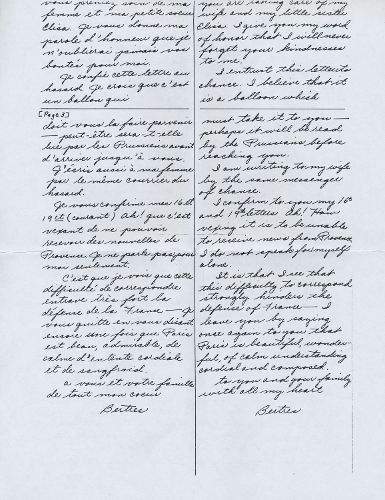 vous prenez soin de ma
femme et ma petite soeur
Elisa. Je vous donne ma
parole d'honneur que je
n'oublierai jamais vos
bontés pour moi.
Je confie cette lettre au
hasard. Je crois que c'est
un ballon qui
[Page 3]
doit vous la faire parvenir
— peut-être sera-t-elle
lue par les Prussiens avant
d'arriver jusqu'à vous.
J'écris aussi à ma femme
par le même courrier du
hasard.
Je vous confirme mes 16 et
19 et (courant) Ah! que c'est
vexant de ne pouvoir
recevoir des nouvelles de
Provence. Je ne parle pas pour
moi seulement.
C'est que je vois que cette
difficulté de correspondre
entrave très fort la
défense de la France — Je
vous quitte en vous disant
encore une fois que Paris
est beau, admirable, de
calme d'entente cordiale
et de sangfroid.
a vous et votre famille
de tout mon coeur
Bertres
you are taking care of my
wife and my little sister
Elisa I give you my word
of honor that I will never
forget your kindnesses
to me.
I entrust this letter to
chance. I believe that it
is a balloon which
must take it to you —
perhaps it will be read
by the Prussians before
reaching you.
I am writing to my wife
by the same messenger
of chance.
I confirm to you my 16th
and 19th letters Ah! How
vexing it is to be unable
to receive news from Provence,
I do not speak for myself
alone
It is that I see that
this difficulty to correspond
strongly hinders the
defense of France — I
leave you by saying
once again to you that
Paris is beautiful, wonder-
ful, of calm understanding
cordial and composed.
to you and your family
with all my heart
Bertres